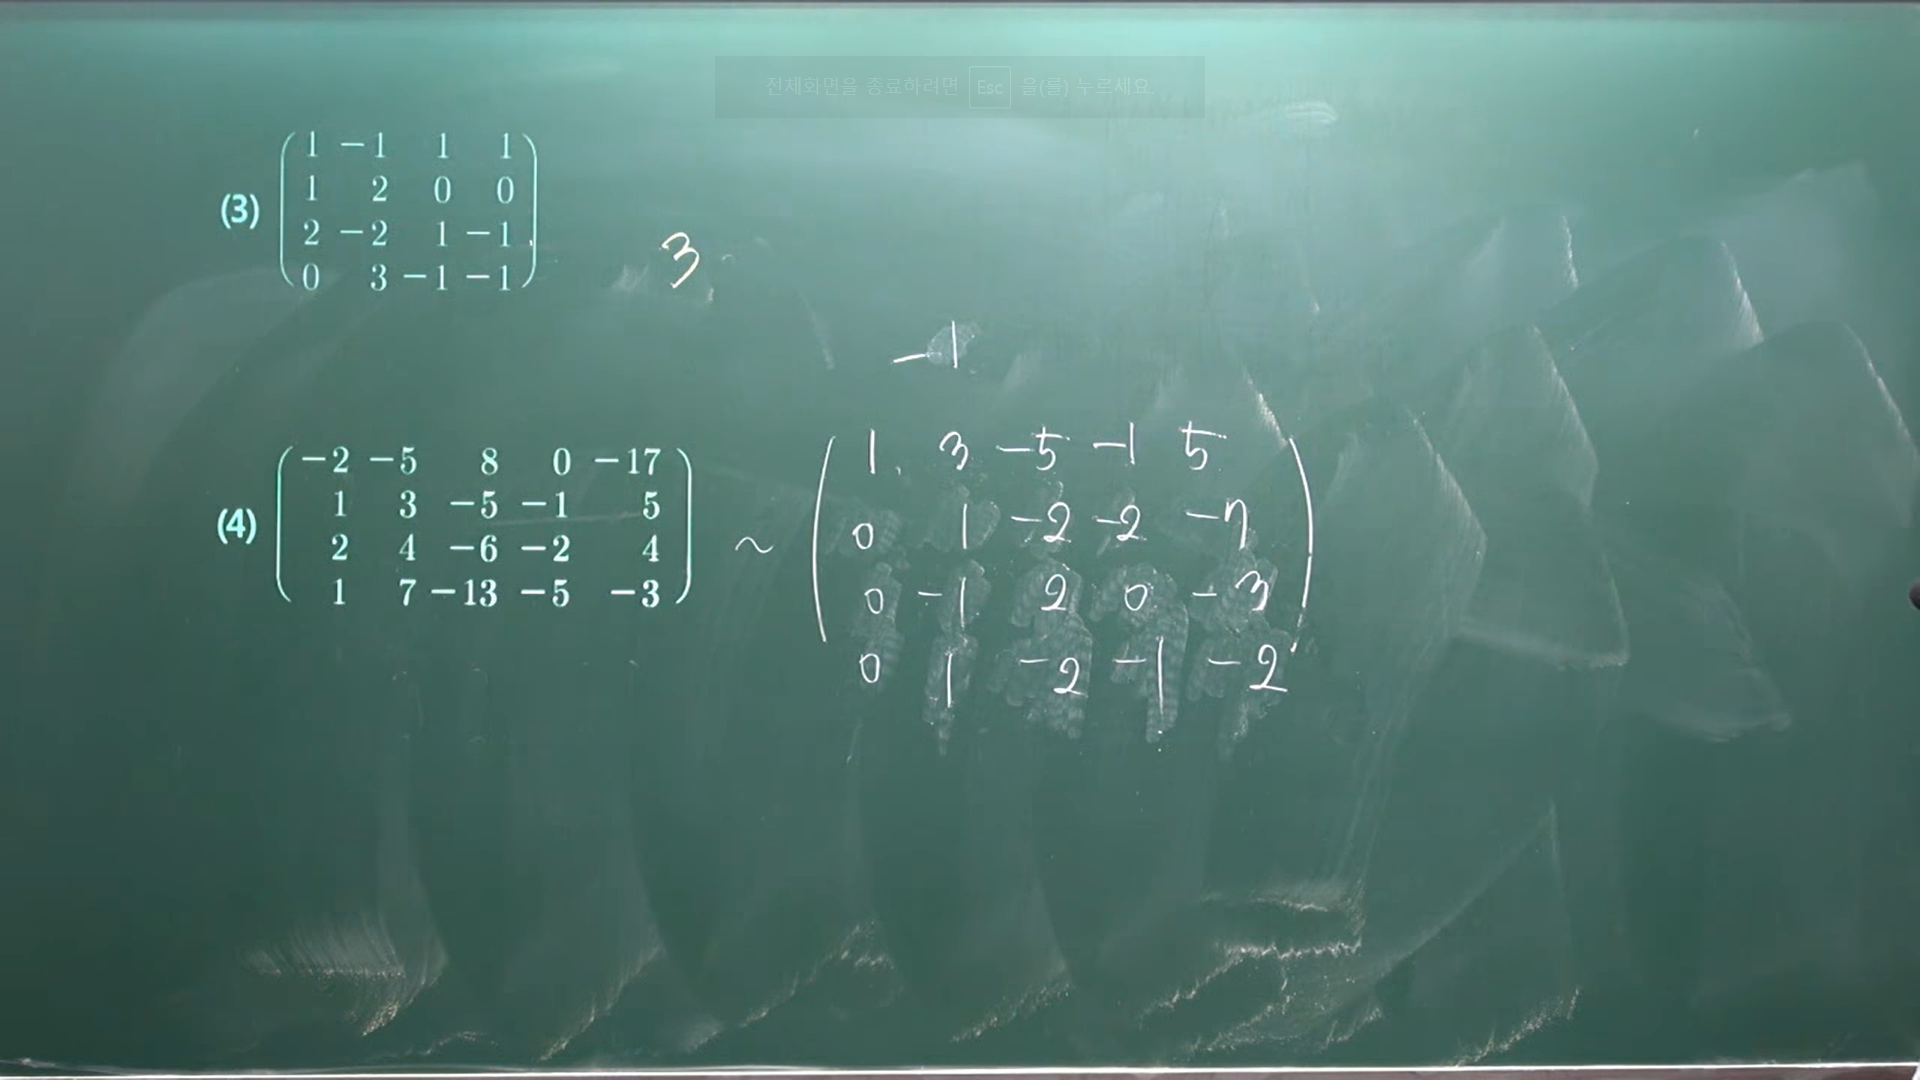 전체화면을 종료하려면 Esc 을(를) 누르세요.
1 -1 1 1
1 2 0 0
(3)
2 -2 1 -1
0 3 -1 -1
3
-1
-2 -5 8 0 -17
1 3 -5 -1 5
(4)
2 4 -6 -2 4
1 7 -13 -5 -3
~
1 3 -5 -1 5
0 1 -2 -2 -7
0 -1 2 0 -3
0 1 -2 -1 -2